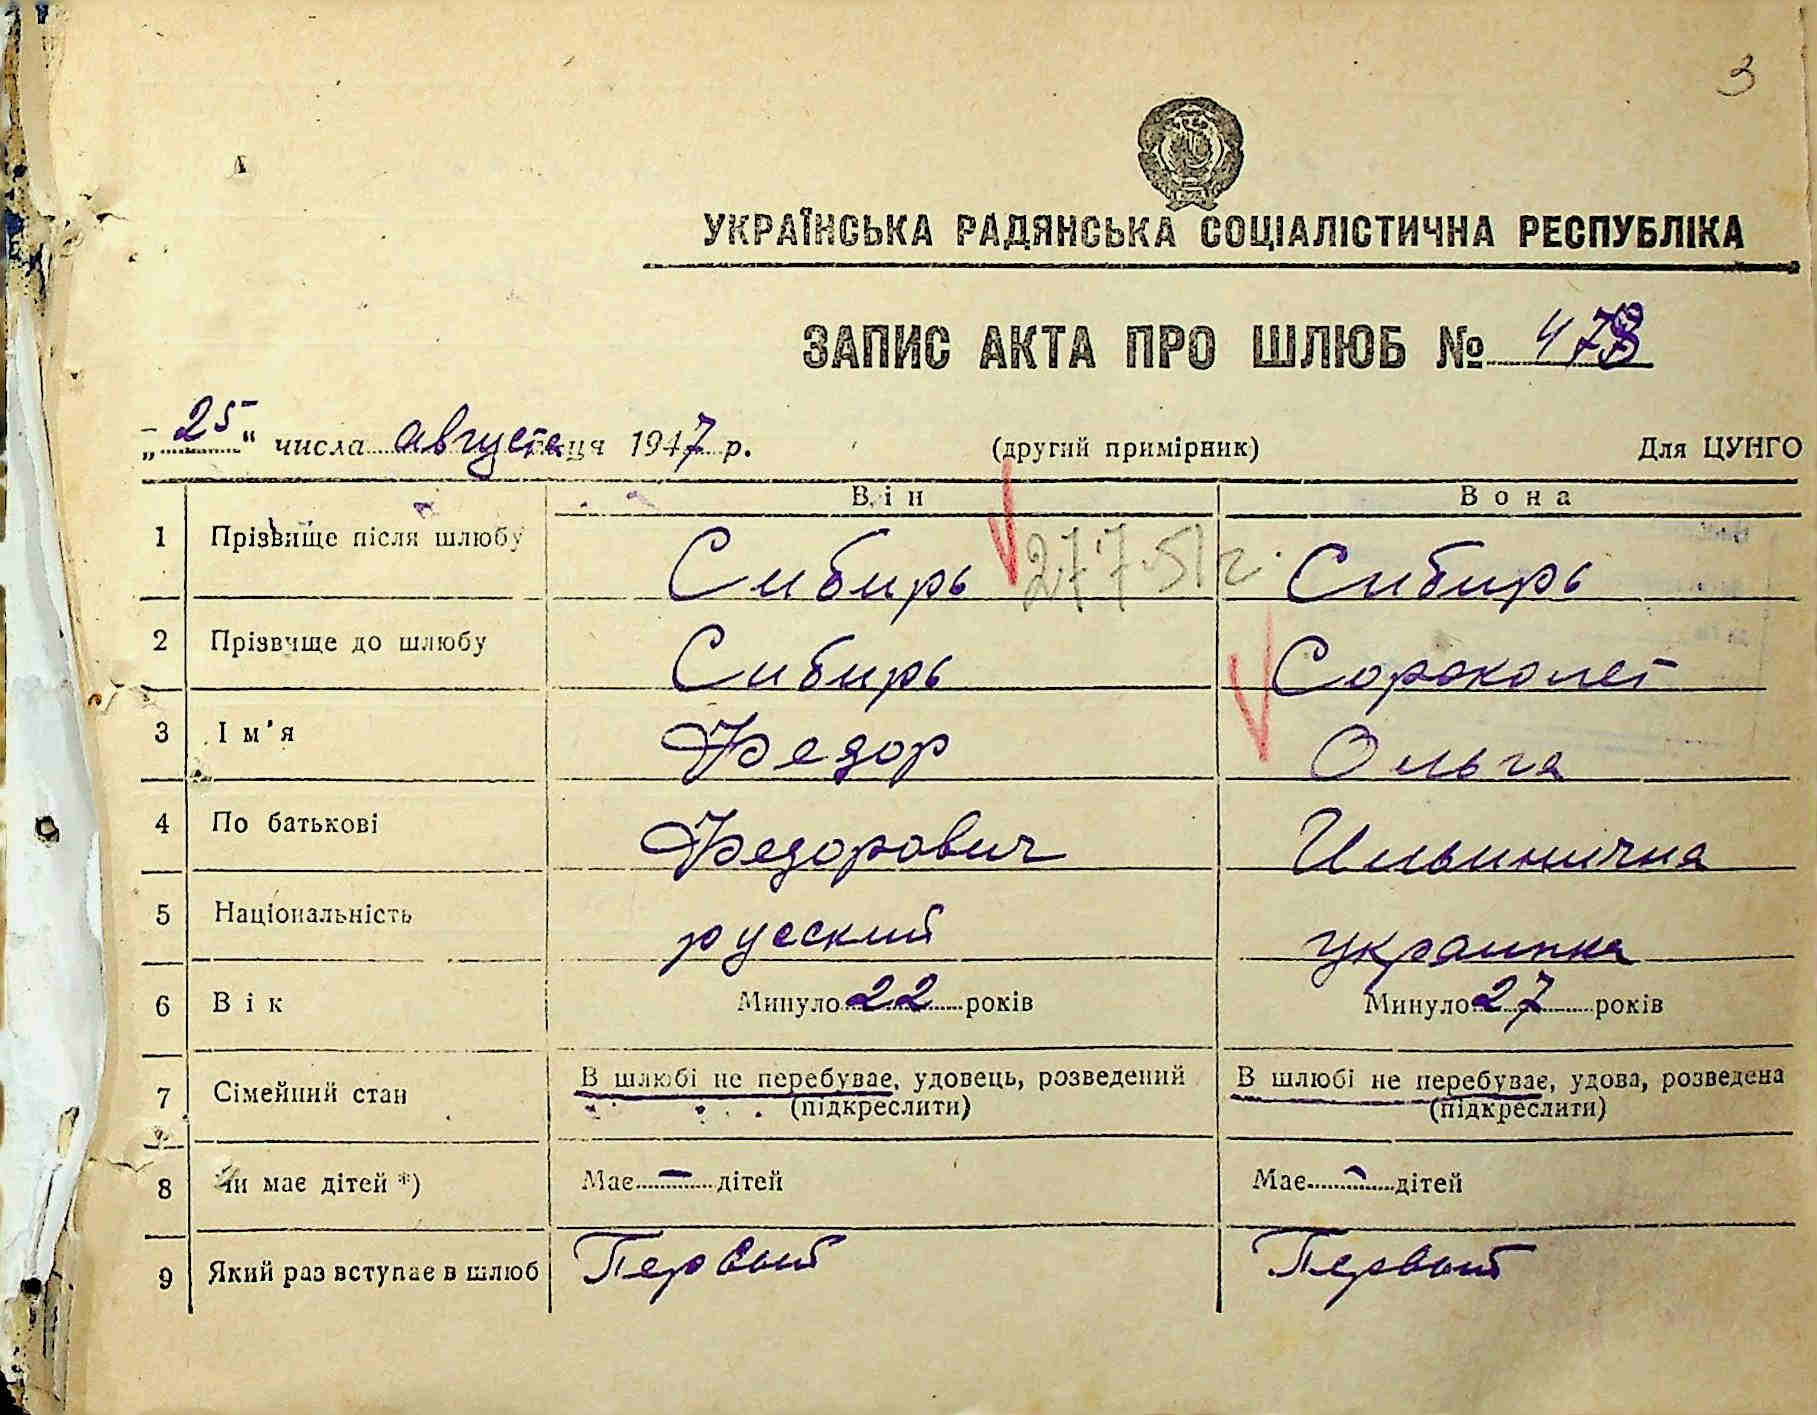 3
УКРАЇНСЬКА РАДЯНСЬКА СОЦІАЛІСТИЧНА РЕСПУБЛІКА
ЗАПИС АКТА ПРО ШЛЮБ № 478
„25“ числа августа місяця 1947 р. (другий примірник) Для ЦУНГО
Він Вона
1 Прізвище після шлюбу Сибирь 27.7.51г. Сибирь
2 Прізвище до шлюбу Сибирь Сороколет
3 Ім'я Федор Ольга
4 По батькові Федорович Ильинична
5 Національність русский украинка
6 Вік Минуло 22 років Минуло 27 років
7 Сімейний стан В шлюбі не перебуває, удовець, розведений В шлюбі не перебуває, удова, розведена
(підкреслити) (підкреслити)
8 Чи має дітей *) Має — дітей Має — дітей
9 Який раз вступає в шлюб Первый Первый